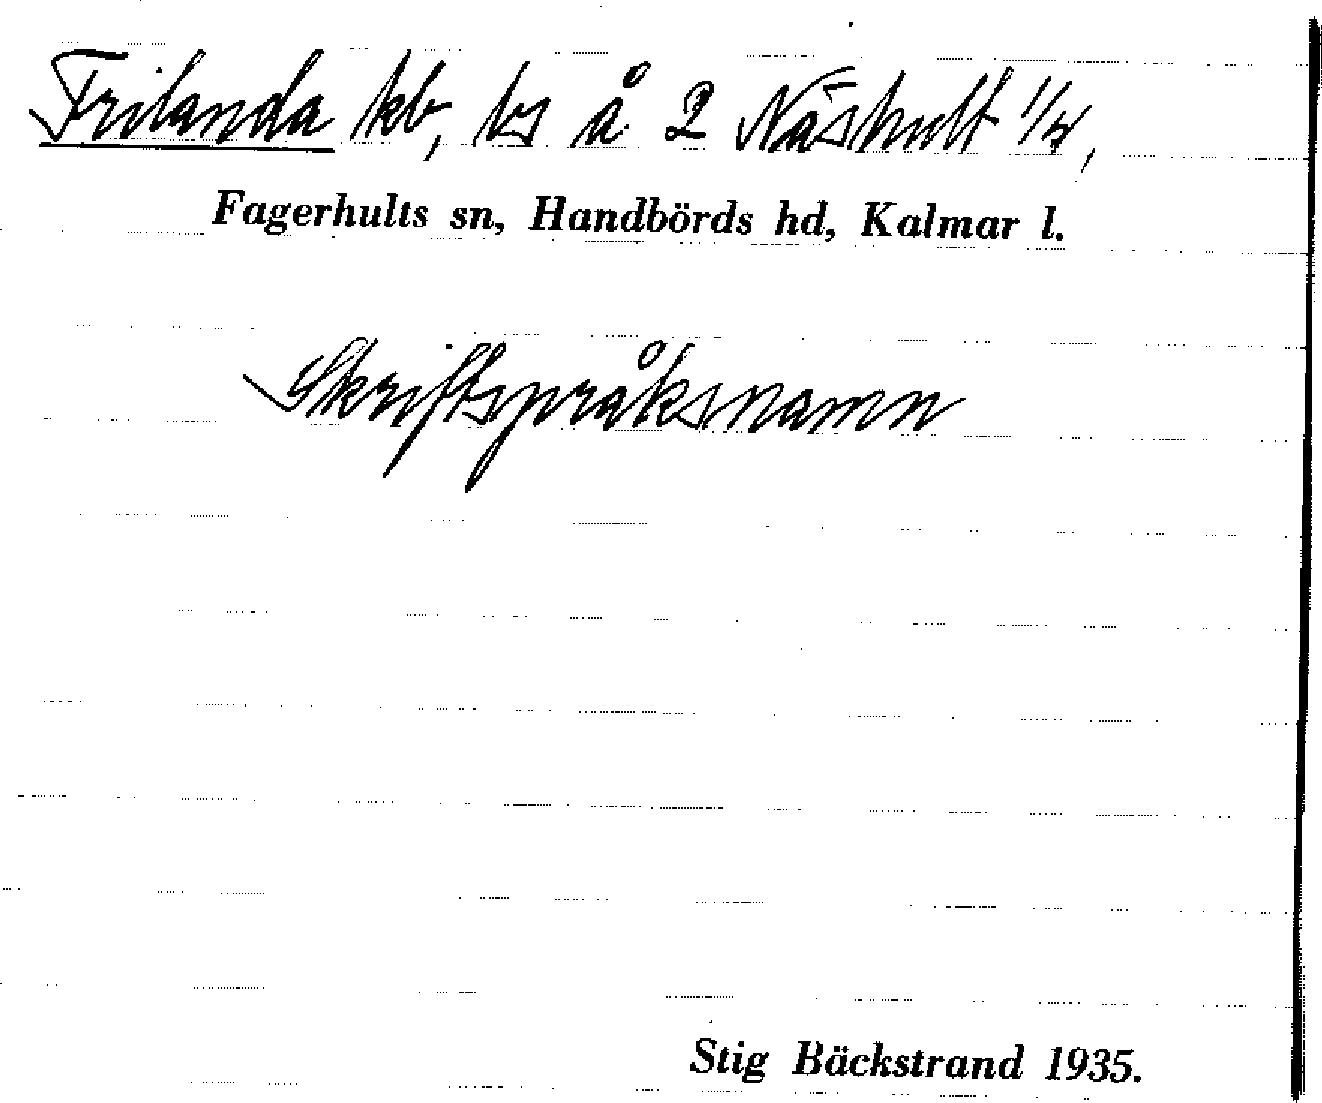 Frilanda kb, bs å 2 Näshult 1/4,
Fagerhults sn, Handbörds hd, Kalmar l.
Skriftspråksnamn
Stig Bäckstrand 1935.